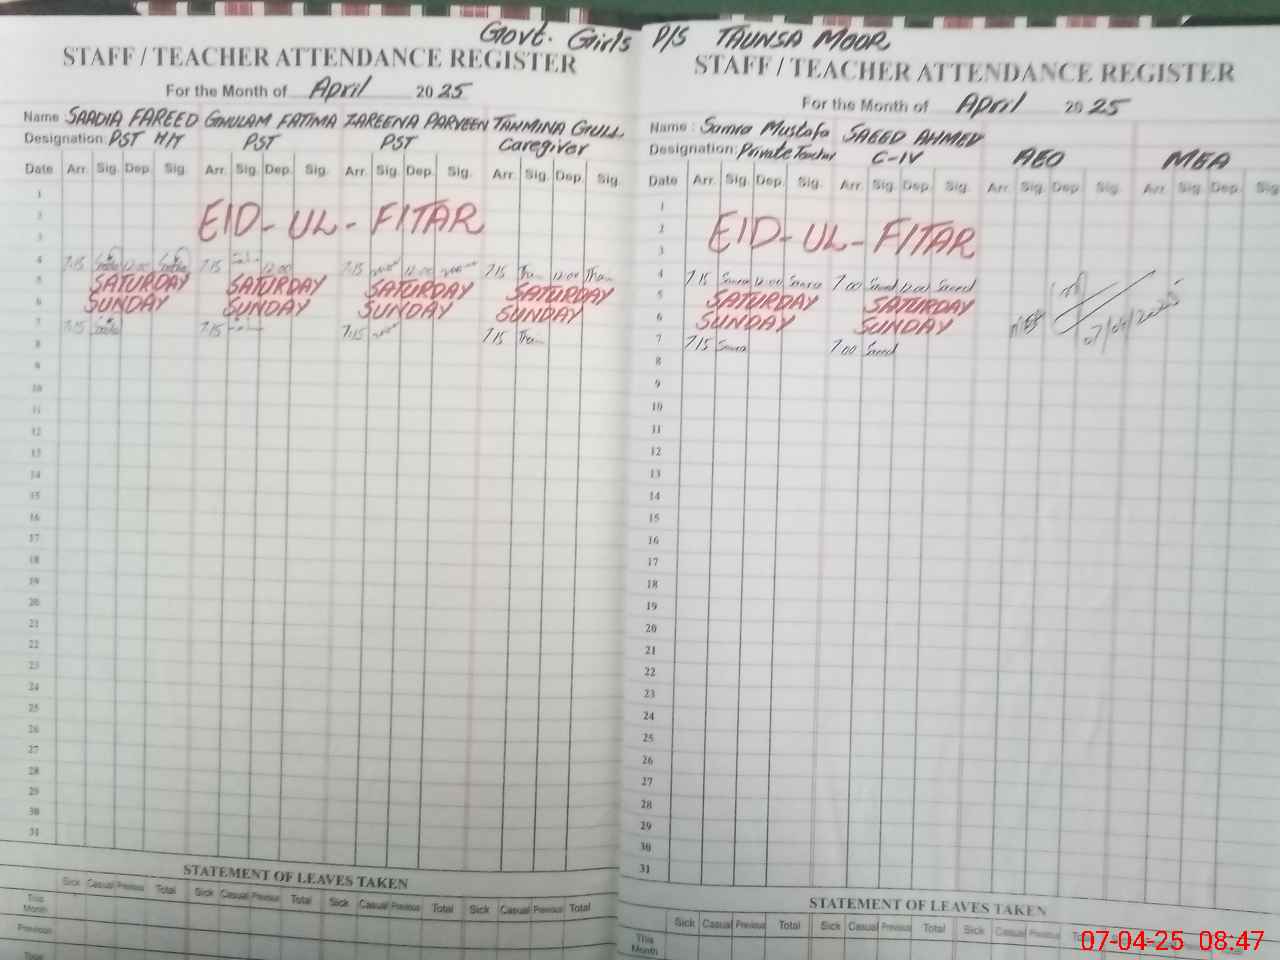 Govt. Girls P/S TAUNSA MOOR
STAFF / TEACHER ATTENDANCE REGISTER
For the Month of April 2025
Name SAADIA FAREED GHULAM FATIMA ZAREENA PARVEEN TAHMINA GULL
Designation: PST H/T PST PST Caregiver
Date Arr. Sig. Dep. Sig. Arr. Sig. Dep. Sig. Arr. Sig. Dep. Sig. Arr. Sig. Dep. Sig.
1
2 EID-UL-FITAR
3
4 7:15 12:00 7:15 12:00 7:15 12:00 7:15 12:00
5 SATURDAY SATURDAY SATURDAY SATURDAY
6 SUNDAY SUNDAY SUNDAY SUNDAY
7 7:15 7:15 7:15 7:15
8
9
10
11
12
13
14
15
16
17
18
19
20
21
22
23
24
25
26
27
28
29
30
31
STATEMENT OF LEAVES TAKEN
Sick Casual Previous Total Sick Casual Previous Total Sick Casual Previous Total Sick Casual Previous Total
This Month
Previous
STAFF / TEACHER ATTENDANCE REGISTER
For the Month of April 2025
Name : Samra Mustafa SAEED AHMED
Designation: Private Teacher C-IV AEO MEA
Date Arr. Sig. Dep. Sig. Arr. Sig. Dep. Sig. Arr. Sig. Dep. Sig. Arr. Sig. Dep. Sig
1
2 EID-UL-FITAR
3
4 7:15 Samra 12:00 Samra 7:00 Saeed 12:00 Saeed
5 SATURDAY SATURDAY
6 SUNDAY SUNDAY
7 7:15 Samra 7:00 Saeed 07/04/2025
8
9
10
11
12
13
14
15
16
17
18
19
20
21
22
23
24
25
26
27
28
29
30
31
STATEMENT OF LEAVES TAKEN
Sick Casual Previous Total Sick Casual Previous Total Sick Casual Previous
This Month
07-04-25 08:47